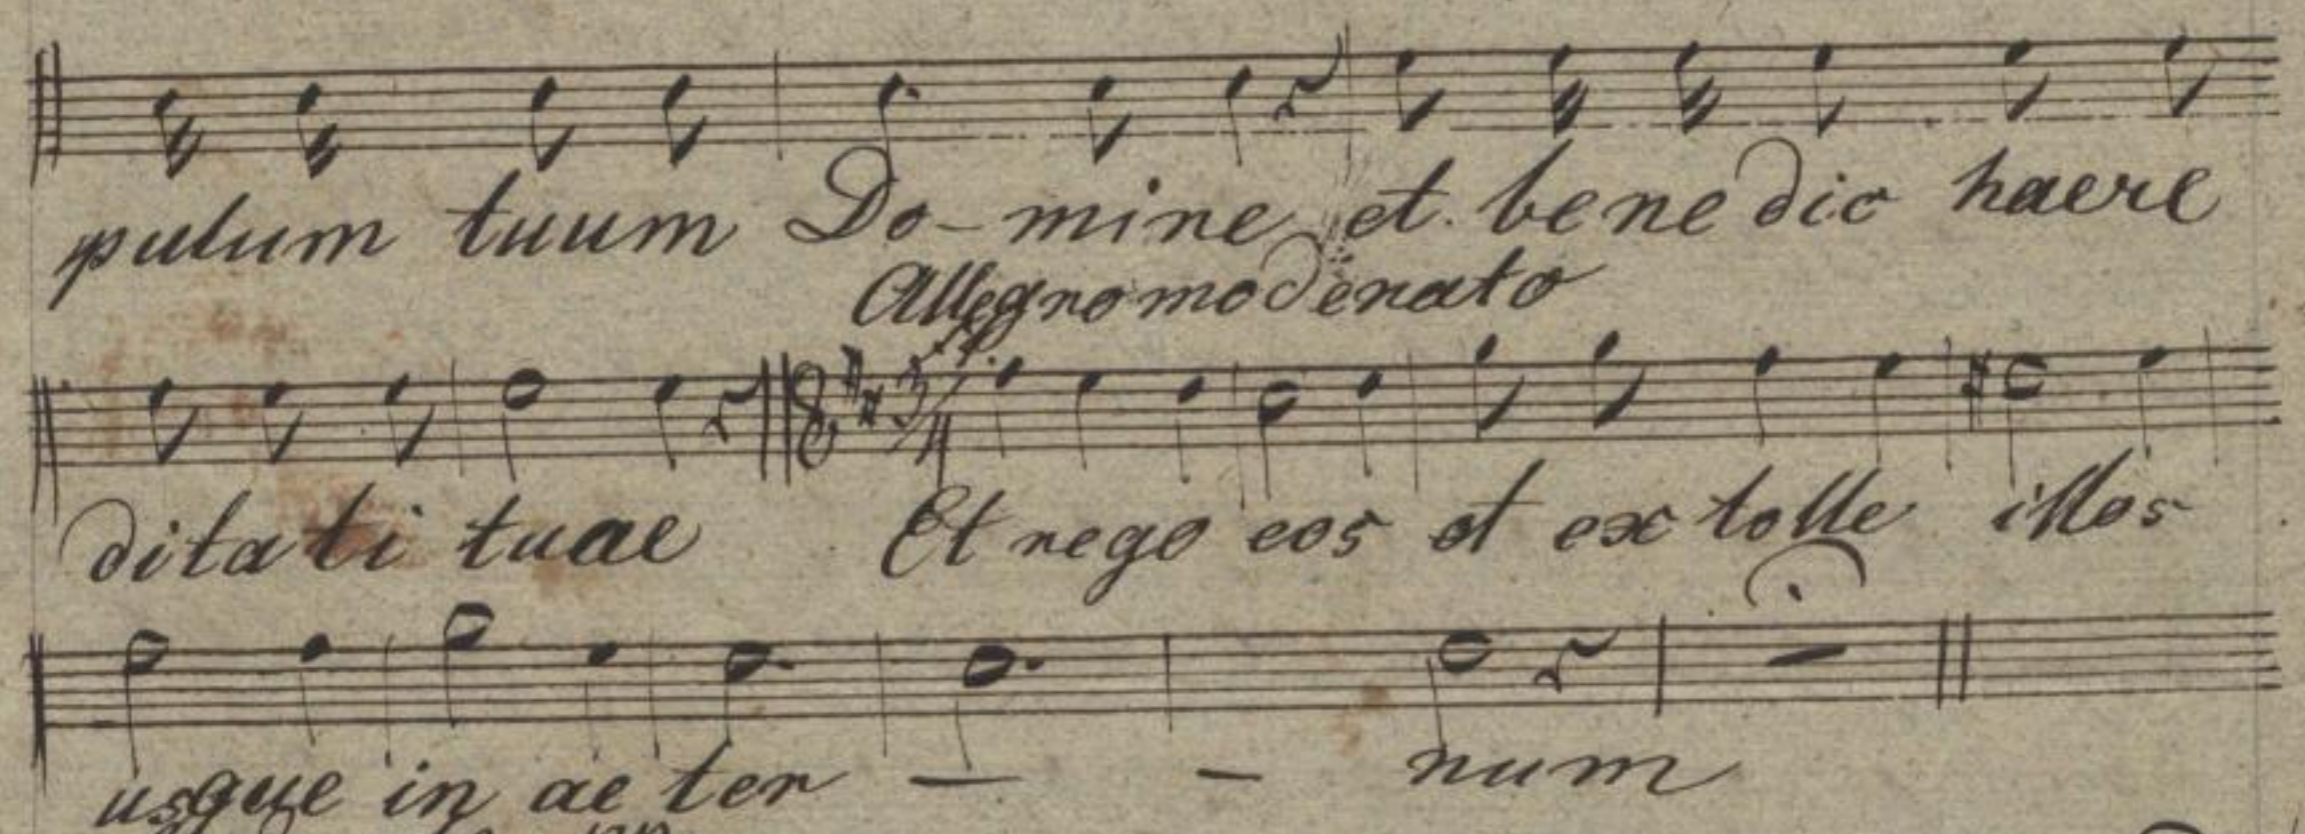 pulum tuum Do - mine et bene dic haere
Allegro moderato
3/4
ditati tuae Et rege eos et ex tolle illos
usque in ae ter - - num